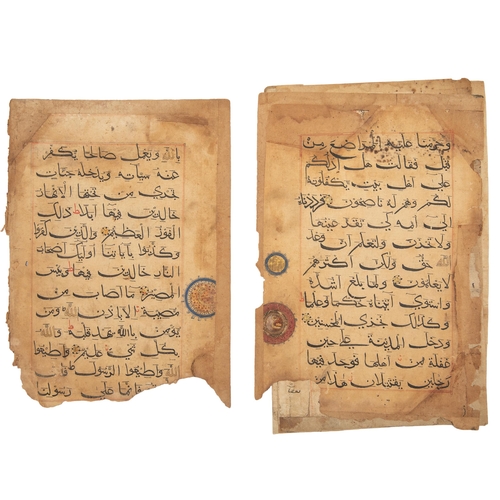 وحرمنا عليه المراضع من
قبل فقالت هل ادلكم
على اهل بيت يكفلونه
لكم وهم له ناصحون فرددناه
الى امه كي تقر عينها
ولا تحزن ولتعلم ان
حق ولكن اكثرهم
لا يعلمون ولما بلغ اشده
واستوى اتيناه حكما وعلما
وكذلك نجزي المحسنين
ودخل المدينة على حين
غفلة من اهلها فوجد فيها
رجلين يقتتلان هذا من
بالله ويعمل صالحا يكفر
عنه سياته ويدخله جنات
تجري من تحتها الانهار
خالدين فيها ابدا ذلك
الفوز العظيم والذين كفروا
وكذبوا باياتنا اوليك اصحاب
النار خالدين فيها وبيس
المصير ما اصاب من
مصيبة الا باذن الله ومن
يومن بالله يهد قلبه والله
بكل شي عليم واطيعوا
الله واطيعوا الرسول
فانما على رسولنا